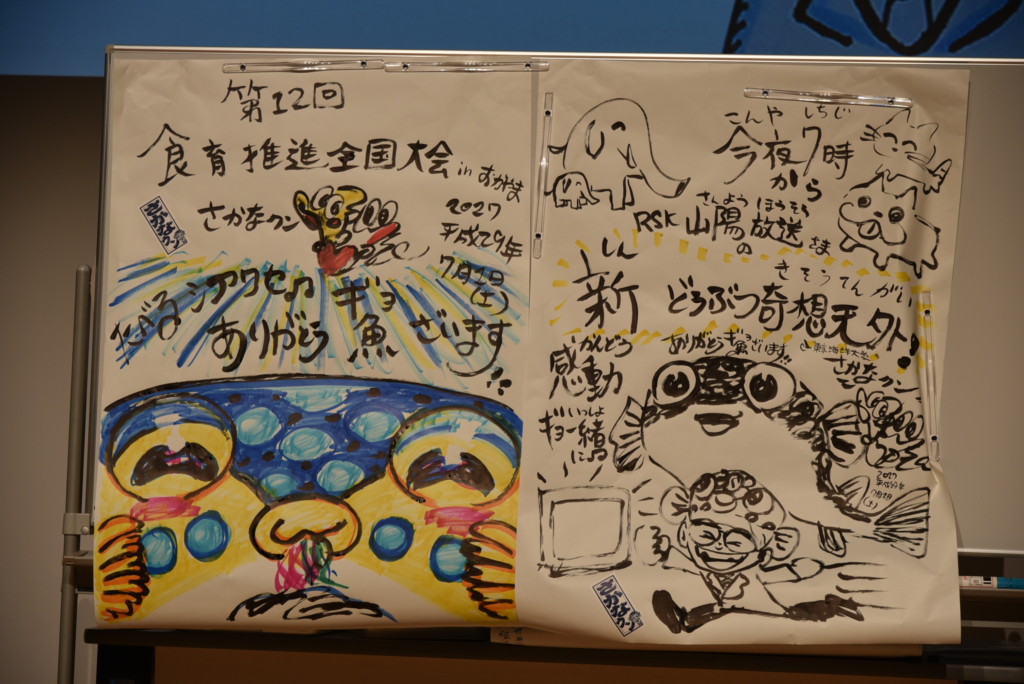 第12回
食育推進全国大会 in おかやま
さかなクン
2017
平成29年
7月1日
(土)
たべるシアワセ♪
ギョ
ありがとう魚ざいます!!
こんや しちじ
今夜7時
から
さんよう ほうそう
RSK 山陽放送さま
の
しん
きそうてんがい
新 どうぶつ奇想天外!
ありがとうギョ魚ざいます!!
さかなクン
かんどう
感動
いっしょ
ギョ一緒
に♪
2017
平成29年
7月1日
(土)
さかなクン